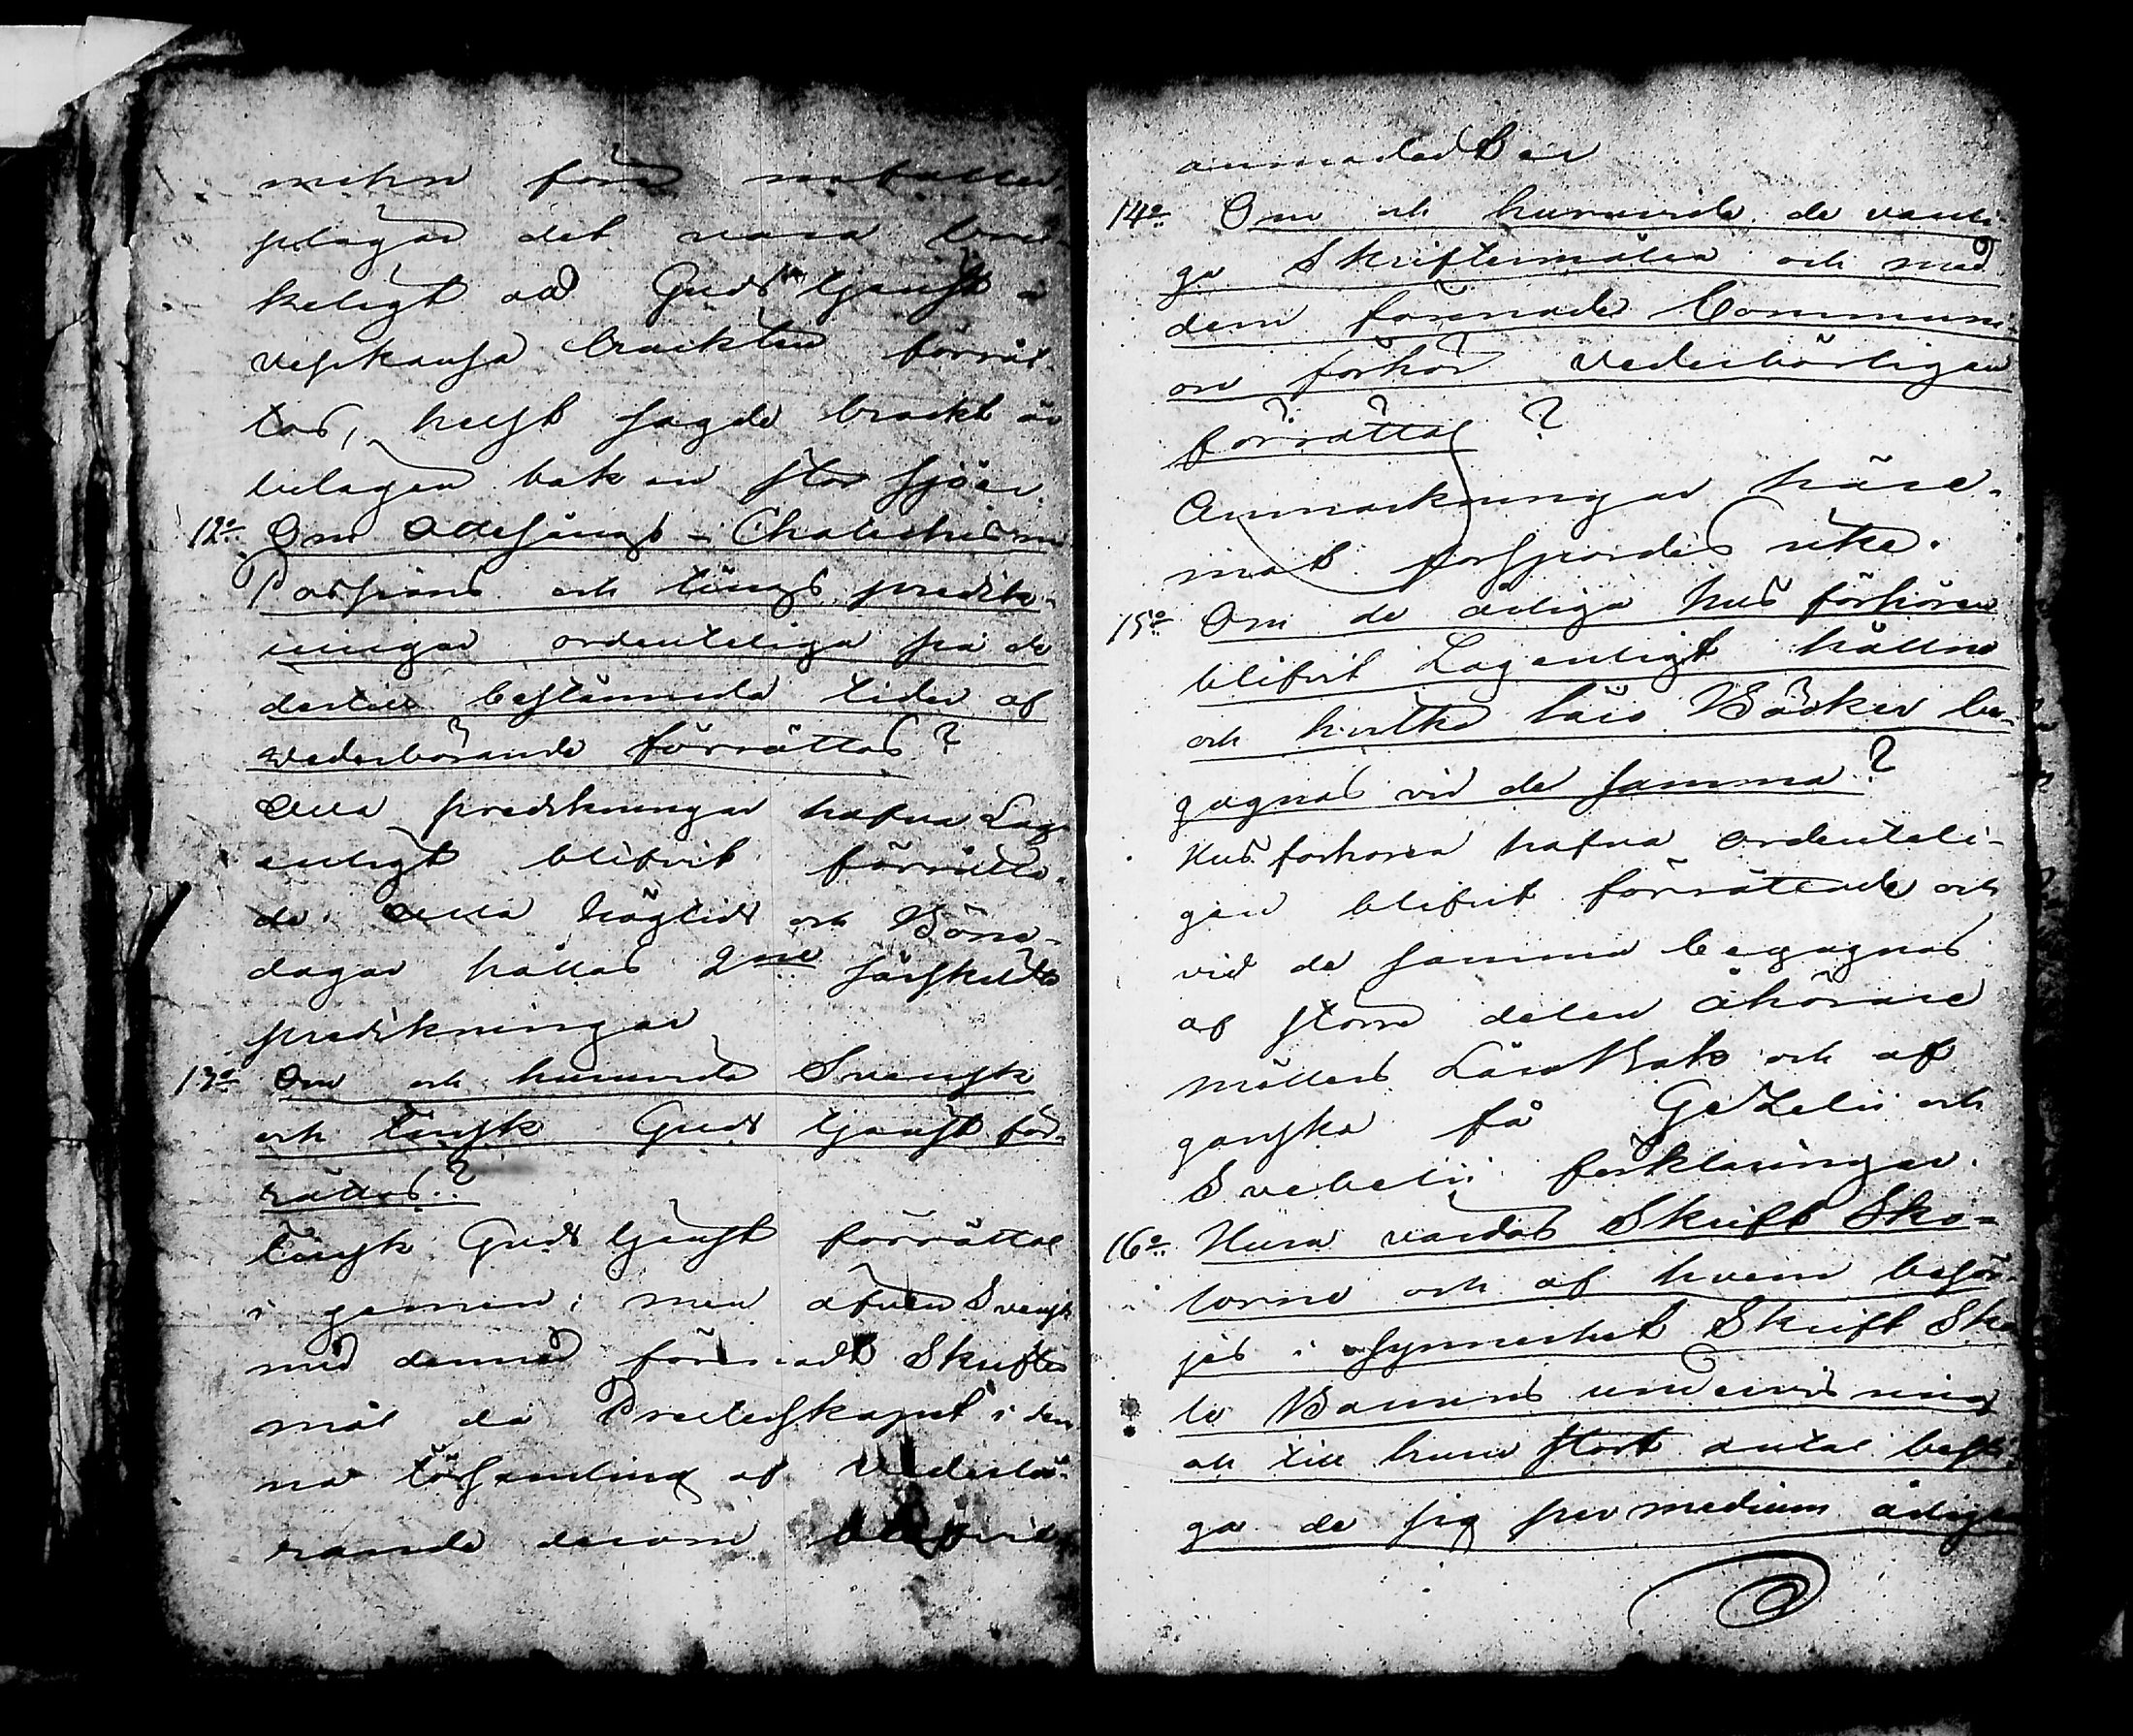 mehn före infaller,
plägar det vara bru-
keligt att Guds tjenst i
visskansa trackten förrät-
tas, helst sagde trackt är
belägen bak en stor sjö är.
12o Om Ottesångs - Chateches mi
Passions och tings predik-
ningar ordenteliga på de
dertill bestämmda tider af
Vederbörande förrättas?
Alla predikningar hafva Lag-
enligt blifvit förrätta-
de. Alla högtids och Böne-
dagar hållas 2ne särskildta
predikningar
13o Om och huruvida Svensk
och finsk Guds tjenst för-
rättas?
finsk Guds tjenst förrättas
i gemen; men äfven Svensk
med dermed förenadt Skrifte
mål då Presterskapet i den
na församling af Vederbö-
rande derom blifvit
anmodadt är
14o Om och huruvida de vanli-
ga Skriftermålen och med
dem förenade Commun-
on förhör Vederbörligen
förrättas?
Anmärkningar häre-
mot förspordes icke.
15o Om de årliga hus förhören
blifvit Lagenligt hållne
och hvilka läro Böcker be-
gagnas vid de samma?
Hus förhören hafva ordenteli-
gen blifvit förrättade och
vid de samma begagnas
af större delen åhörare
möllers Läro Bok och af
ganska få Gezelii och
Svebelii förklaringar.
16o Huru vårdas Skrift Sko-
lorne och af hvem besör-
jes i synnerhet Skrift Sko
le Barnens undervisning
och till huru stort antal besti-
ga de sig per medium årligen